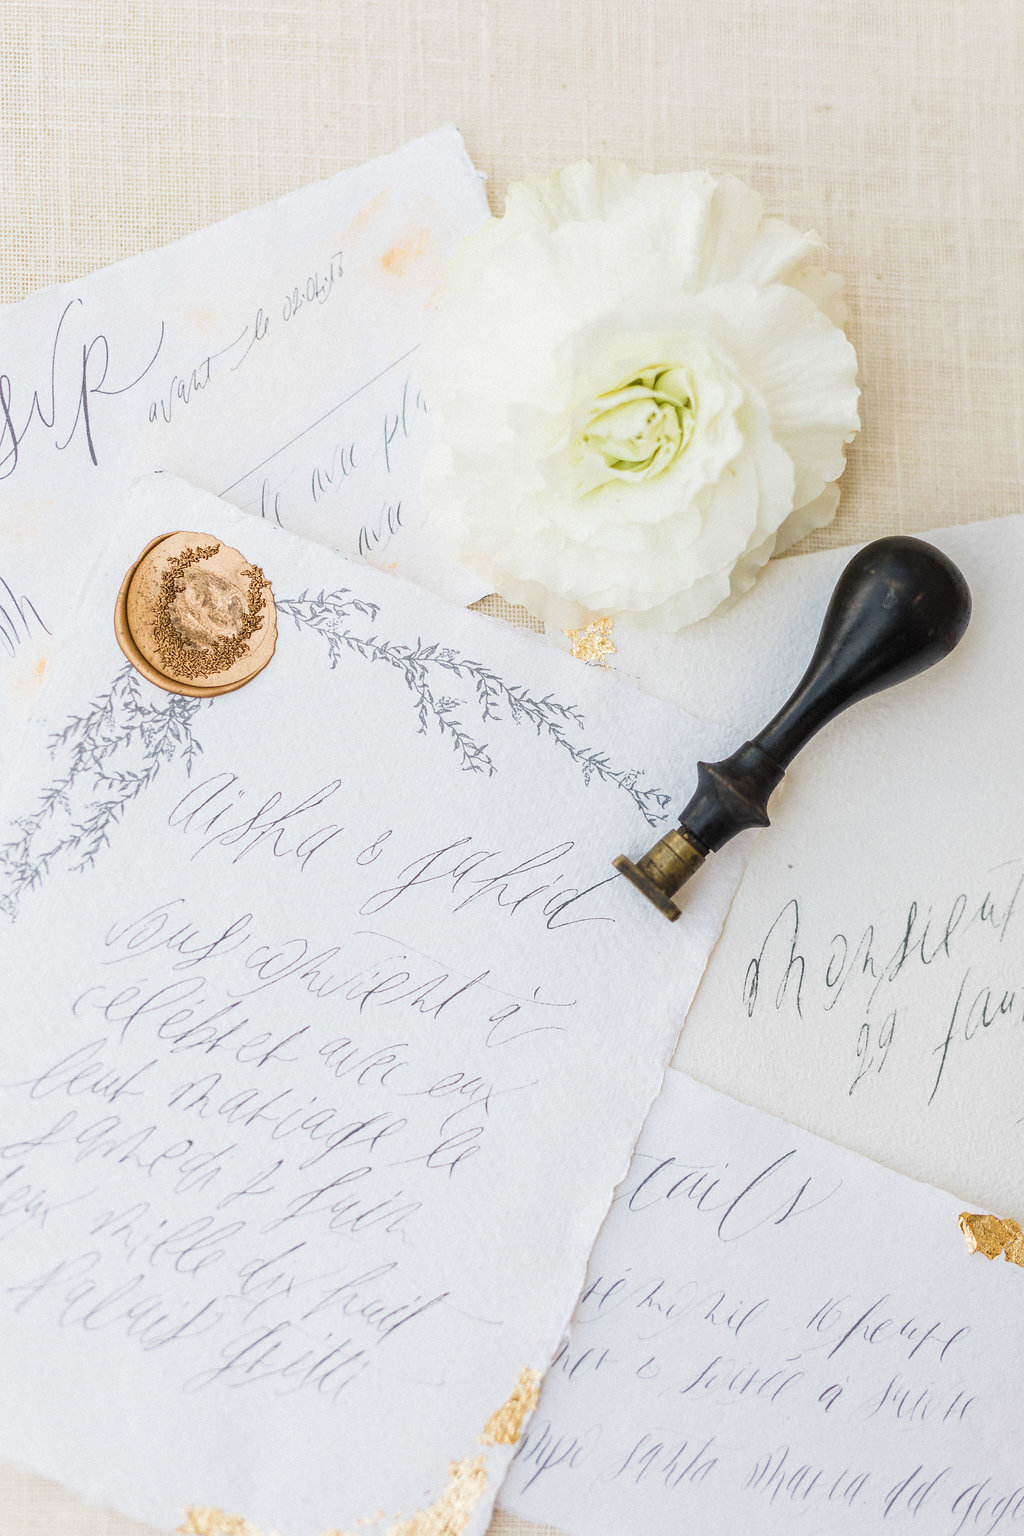 SVP
avant le 02.04.18
avec
avec
aisha & sahid
vous convient à
célébrer avec eux
leur mariage le
samedi 2 juin
deux mille dix huit
Palais Gritti
Monsieur
29
tails
rémonie 16 heure
& soirée à suivre
mpo santa maria del giglio